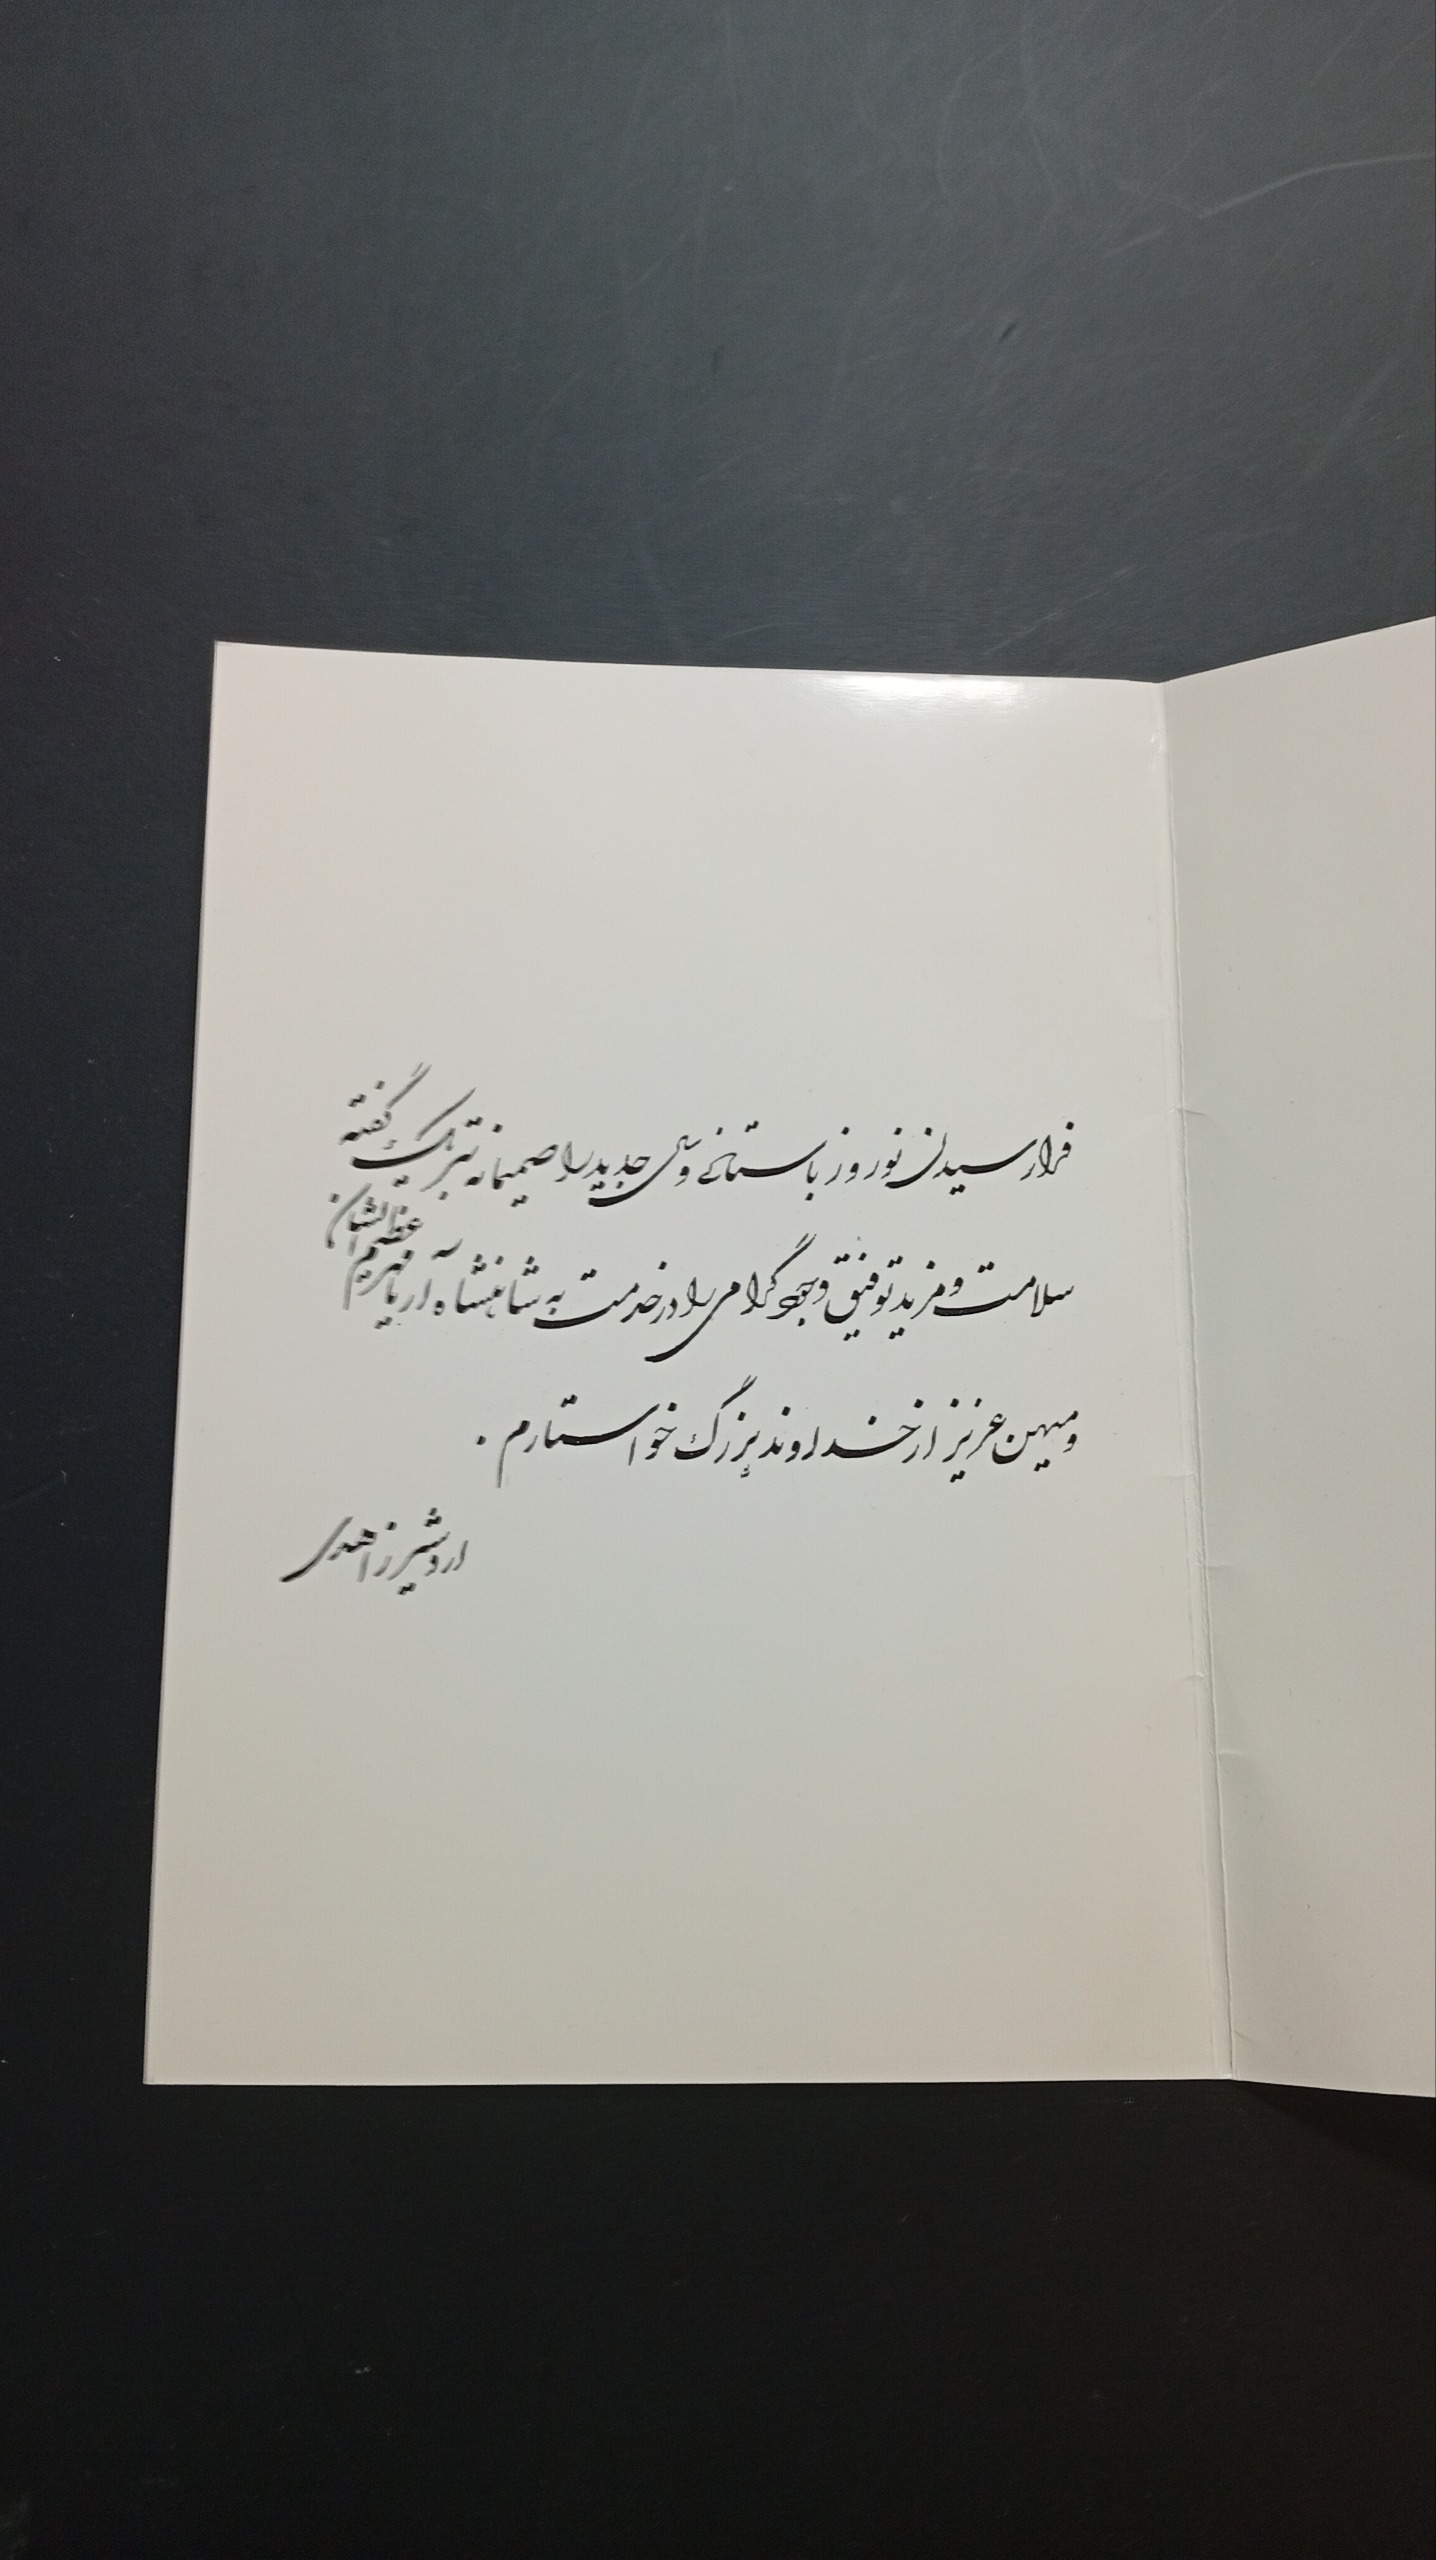 فرارسیدن نوروز باستانی و سال جدید را صمیمانه تبریک گفته
سلامت و مزید توفیق وجود گرامی را در خدمت به شاهنشاه آریامهر عظیم الشان
و میهن عزیز از خداوند بزرگ خواستارم .
اردشیر زاهدی